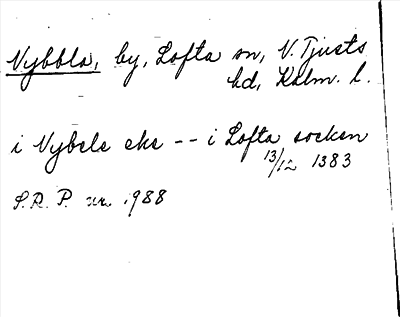 Nybbla, by, Lofta sn, N. Tjusts
hd, Kalm. l.
i Nybele eke -- i Lofta socken
13/12 1383
S.R.P. nr. 1988